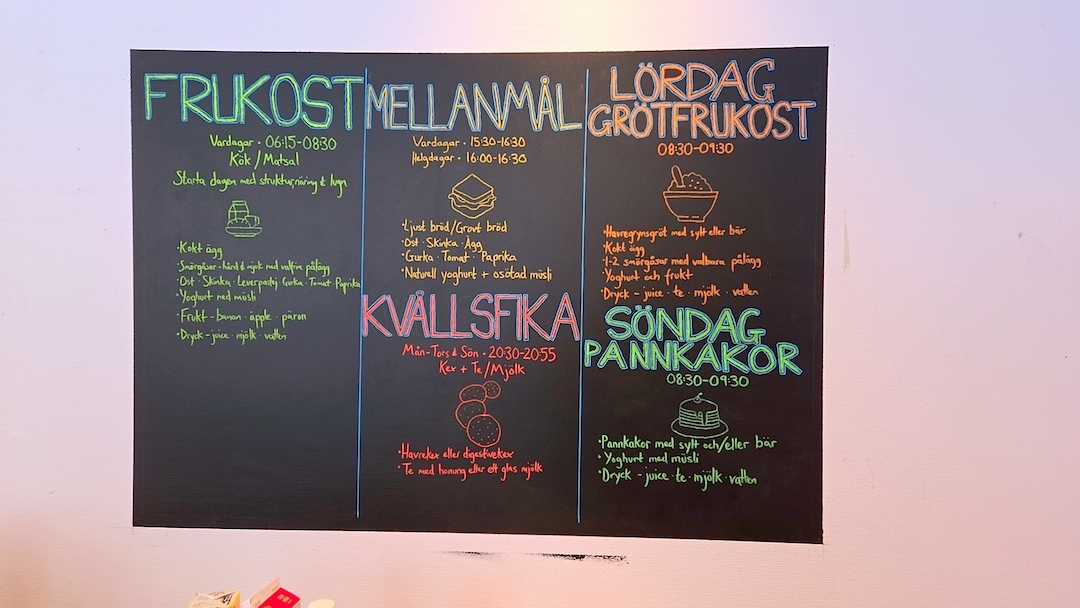 FRUKOST
Vardagar · 06:15-08:30
Kök / Matsal
Starta dagen med struktur, näring & lugn
·Kokt ägg
·Smörgåsar - hård & mjuk med valfria pålägg
Ost · Skinka · Leverpastej · Gurka · Tomat · Paprika
·Yoghurt med müsli
·Frukt - banan · äpple · päron
·Dryck - juice · mjölk · vatten
MELLANMÅL
Vardagar · 15:30-16:30
Helgdagar · 16:00-16:30
·Ljust bröd/Grovt bröd
·Ost · Skinka · Ägg
·Gurka · Tomat · Paprika
·Naturell yoghurt + osötad müsli
KVÄLLSFIKA
Mån-Tors & Sön · 20:30-20:55
Kex + Te/Mjölk
·Havrekex eller digestivekex
·Te med honung eller ett glas mjölk
LÖRDAG
GRÖTFRUKOST
08:30-09:30
·Havregrynsgröt med sylt eller bär
·Kokt ägg
·1-2 smörgåsar med valbara pålägg
·Yoghurt och frukt
·Dryck - juice · te · mjölk · vatten
SÖNDAG
PANNKAKOR
08:30-09:30
·Pannkakor med sylt och/eller bär
·Yoghurt med müsli
·Dryck - juice · te · mjölk · vatten